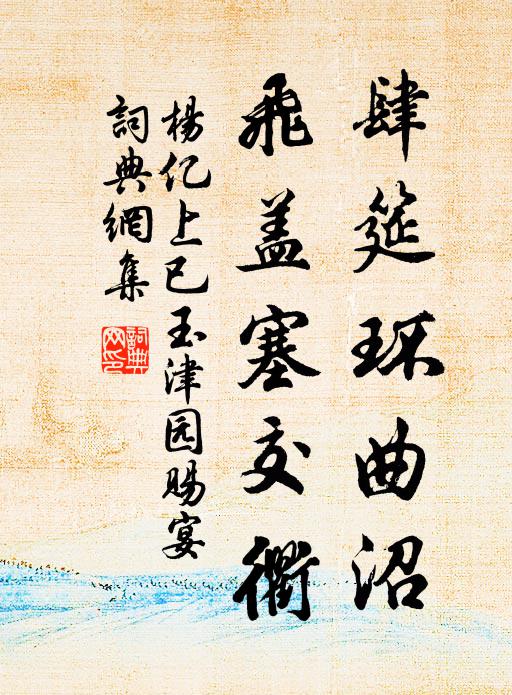 肆筵环曲沼
飛盖塞交衢
楊亿上巳玉津园賜宴
詞典網集
詞典網印